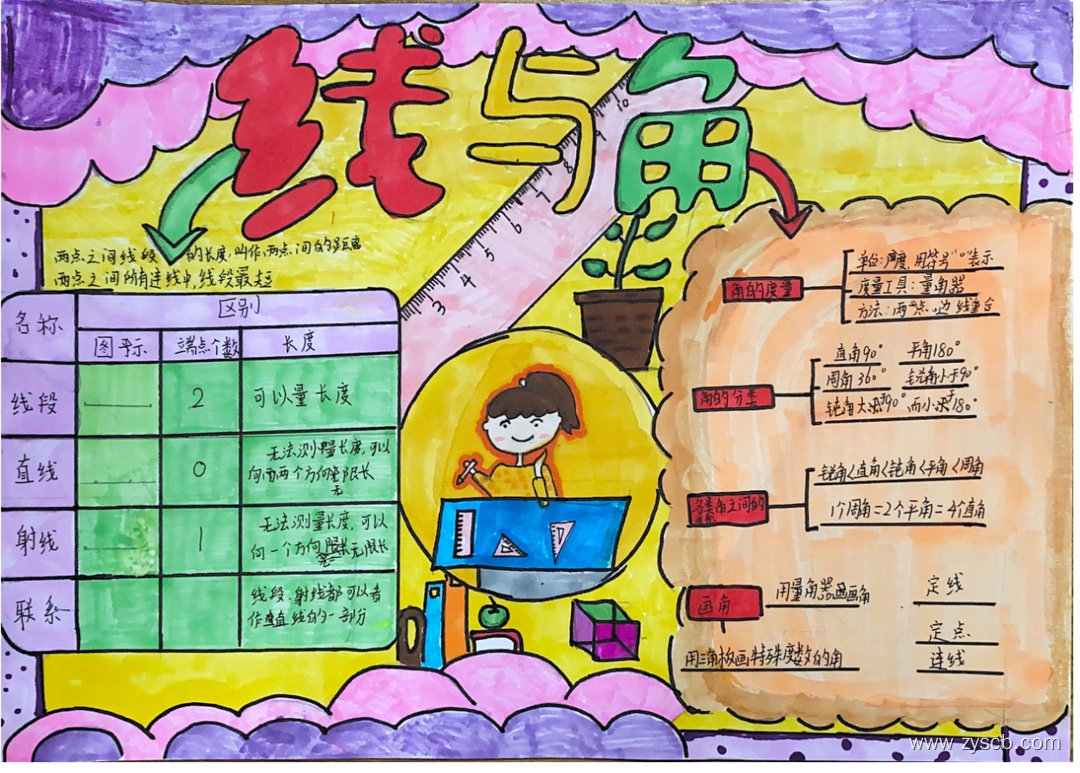 线与角
两点之间线段的长度,叫作两点间的距离
两点之间所有连线中,线段最短
名称
区别
图示
端点个数
长度
线段
2
可以量长度
直线
0
无法测量长度,可以
向两个方向无限长
射线
1
无法测量长度,可以
向一个方向无限长
联系
线段、射线都可以看
作直线的一部分
3 4 5 6 7 8 9 10
角的度量
单位:度,用符号"°"表示
度量工具:量角器
方法:两重合
角的分类
直角90° 平角180°
周角360° 锐角小于90°
钝角大于90°而小于180°
各类角之间的
锐角<直角<钝角<平角<周角
1个周角=2个平角=4个直角
画角
用量角器画角
定线
定点
连线
用三角板画特殊度数的角
www.zyscb.com